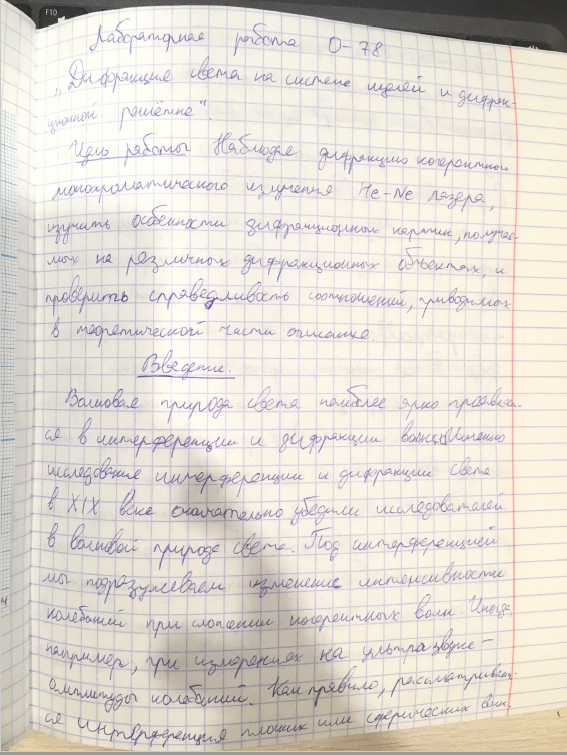 F10
Лабораторная работа О-78
„Дифракция света на системе щелей и дифрак-
ционной решётке".
Цель работы Наблюдая дифракцию когерентного
монохроматического излучения He-Ne лазера,
изучить особенности дифракционных картин, получае-
мых на различных дифракционных объектах, и
проверить справедливость соотношений, приводимых
в теоретической части описания.
Введение.
Волновая природа света наиболее ярко проявляет-
ся в интерференции и дифракции волны. Именно
исследования интерференции и дифракции света
в XIX веке окончательно убедили исследователей
в волновой природе света. Под интерференцией
мы подразумеваем изменение интенсивности
колебаний при сложении когерентных волн. Иногда,
например, при измерениях на ультразвуке -
амплитуды колебаний. Как правило, рассматривает-
ся интерференция плоских или сферических волн.